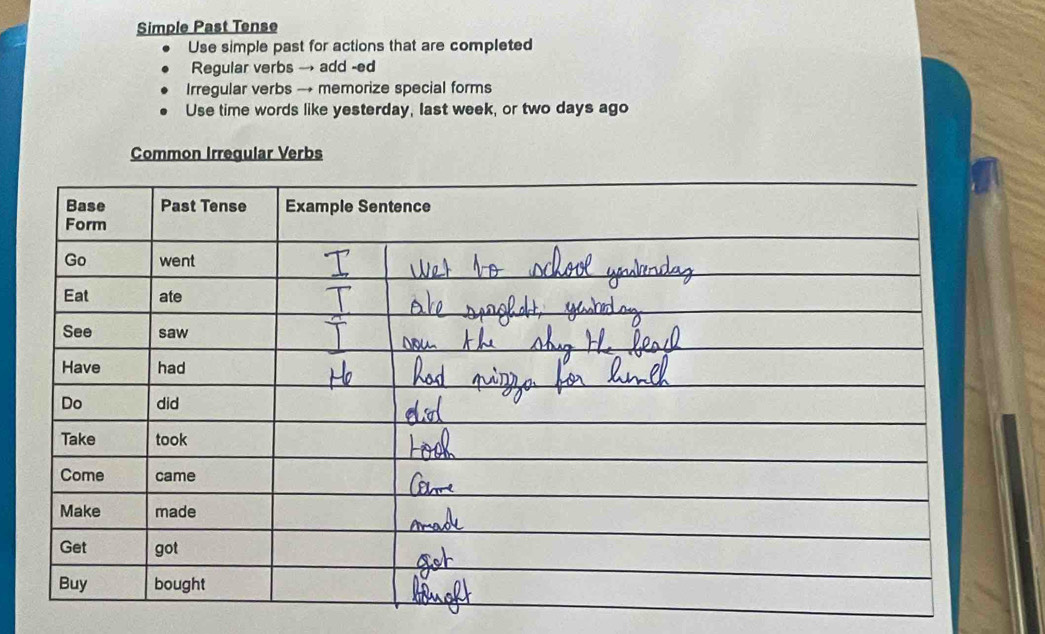 Simple Past Tense
• Use simple past for actions that are completed
• Regular verbs → add -ed
• Irregular verbs → memorize special forms
• Use time words like yesterday, last week, or two days ago
Common Irregular Verbs
Base Form Past Tense Example Sentence
Go went I wet to school
Eat ate I ate
See saw I the the
Have had He had pizza for lunch
Do did did
Take took took
Come came Came
Make made made
Get got got
Buy bought bought